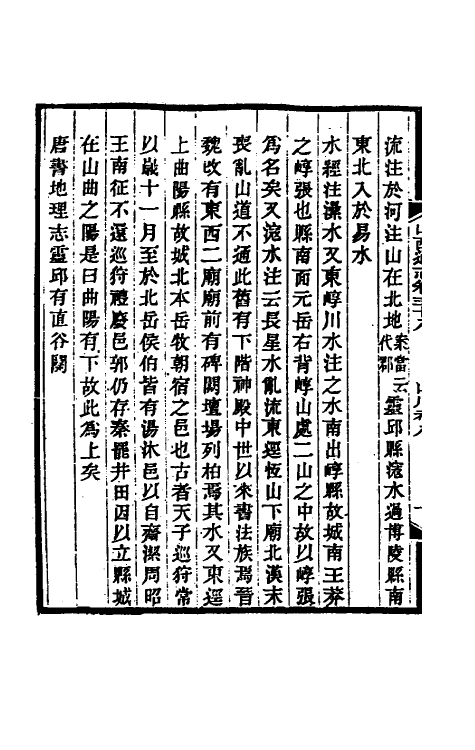 流注於河注山在北地案當云代郡靈邱縣滱水過博陵縣南
東北入於易水
水經注㶟水又東崞川水注之水南出崞縣故城南王莽
之崞張也縣南面元岳右背崞山處二山之中故以崞張
爲名矣又滱水注云長星水亂流東逕恆山下廟北漢末
喪亂山道不通此舊有下階神殿中世以來書法族焉晉
魏改有東西二廟廟前有碑闕壇場列柏焉其水又東逕
上曲陽縣故城北本岳牧朝宿之邑也古者天子巡狩常
以嵗十一月至於北岳侯伯皆有湯沐邑以自齋潔周昭
王南征不還巡狩禮廢邑郭仍存秦罷井田因以立縣城
在山曲之陽是曰曲陽有下故此爲上矣
唐書地理志靈邱有直谷關